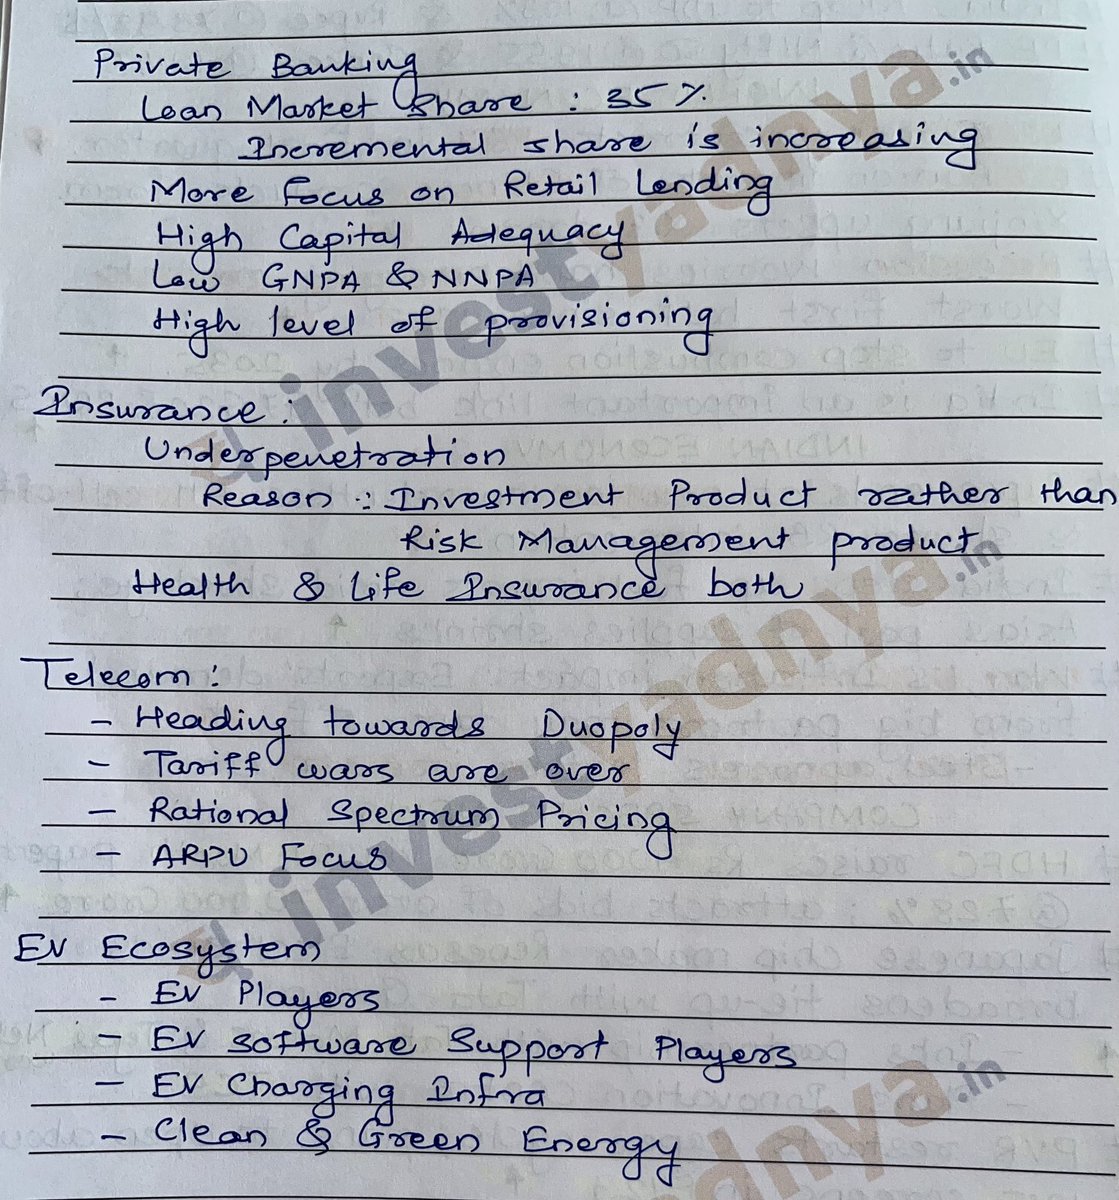 Private Banking
Loan Market Share : 35 %
Incremental share is increasing
More Focus on Retail Lending
High Capital Adequacy
Low GNPA & NNPA
High level of provisioning
Insurance :
Underpenetration
Reason : Investment Product rather than
Risk Management product
Health & Life Insurance both
Telecom :
- Heading towards Duopoly
- Tariff wars are over
- Rational Spectrum Pricing
- ARPU Focus
EV Ecosystem
- EV Players
- EV Software Support Players
- EV Charging Infra
- Clean & Green Energy
investyadnya.in
investyadnya.in
investyadnya.in